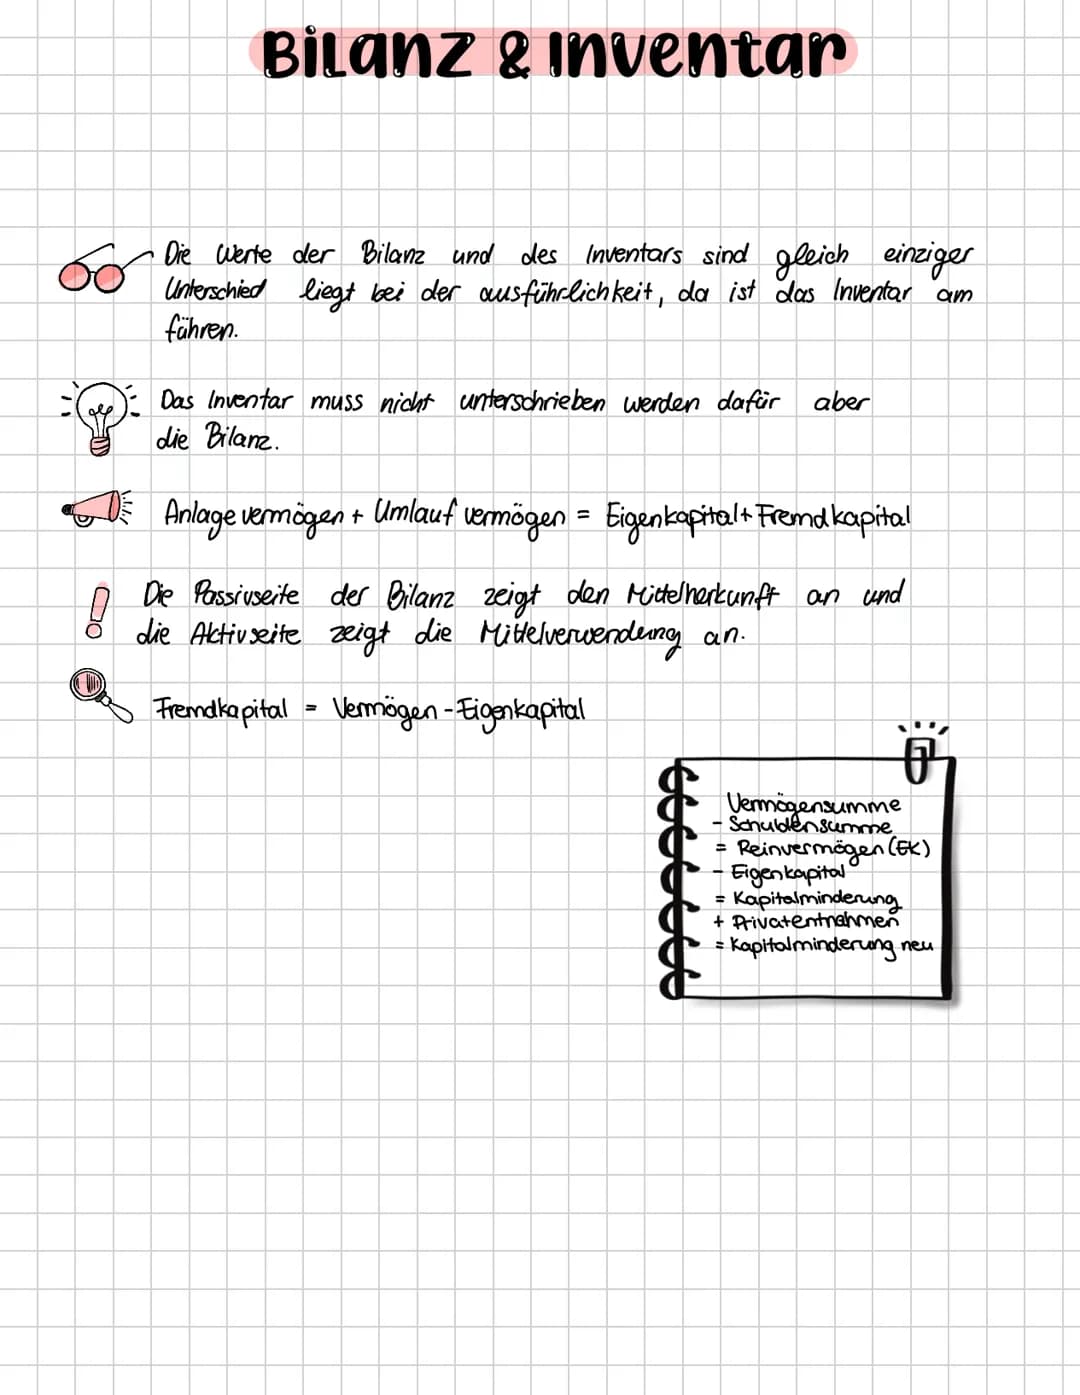 Bilanz & Inventar
Die Werte der Bilanz und des Inventars sind gleich einziger
Unterschied liegt bei der ausführlichkeit, da ist das Inventar am
führen.
Das Inventar muss nicht unterschrieben werden dafür aber
die Bilanz.
Anlagevermögen + Umlaufvermögen = Eigenkapital + Fremdkapital
Die Passivseite der Bilanz zeigt den Mittelherkunft an und
die Aktivseite zeigt die Mittelverwendung an.
Fremdkapital = Vermögen - Eigenkapital
Vermögensumme
- Schuldensumme
= Reinvermögen (EK)
- Eigenkapital
= Kapitalminderung
+ Privatentnahmen
= Kapitalminderung neu